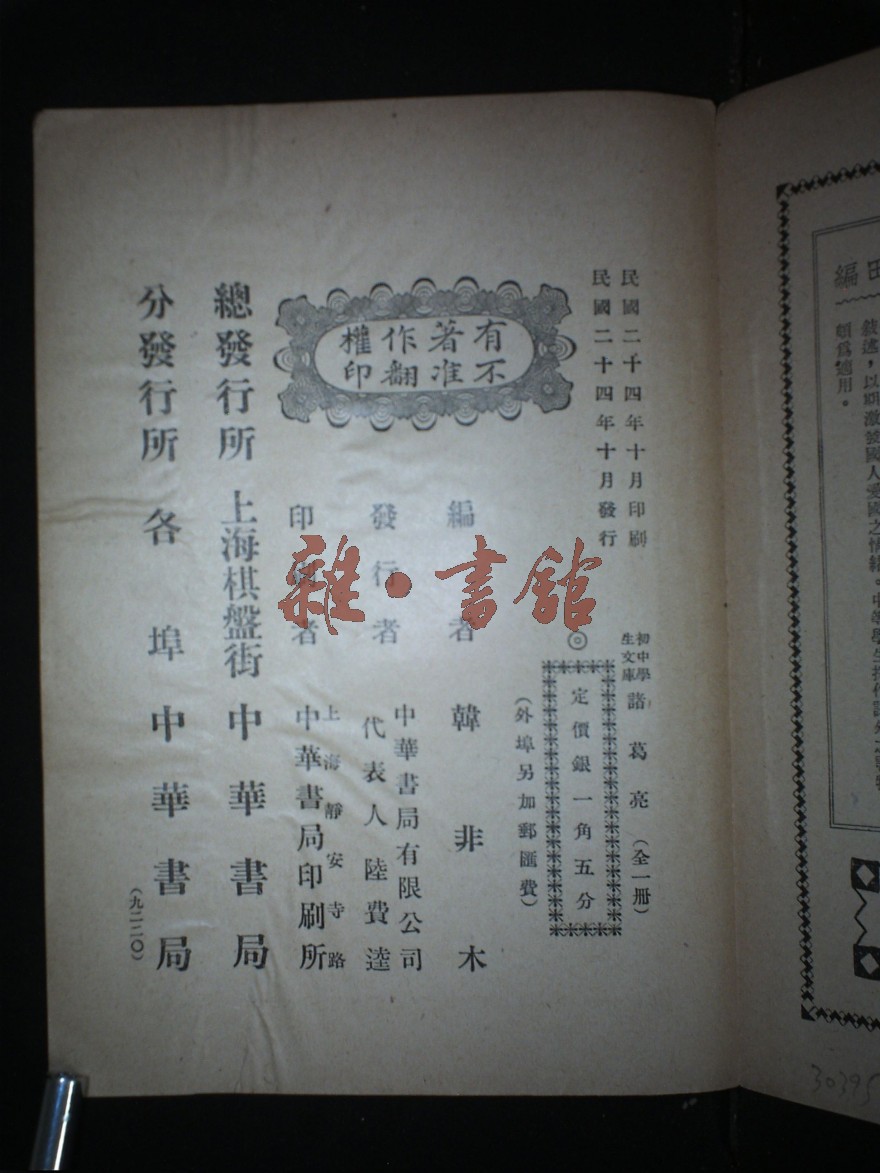 民國二十四年十月印刷
民國二十四年十月發行
初中學生文庫
諸葛亮(全一册)
◎
定價銀一角五分
(外埠另加郵匯費)
有著作權
不准翻印
編者 韓非木
發行者 中華書局有限公司
代表人 陸費逵
印刷者 上海靜安寺路
中華書局印刷所
總發行所 上海棋盤街 中華書局
分發行所 各埠 中華書局
(九二二〇)
雜·書館
編
敍述,以期激發國人愛國之情緒。中等學生
頗爲適用。
30395